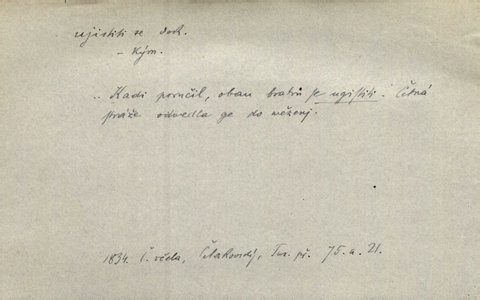 ujistiti se dok.
– kým.
.. Kadi poručil, obau bratrů se ugistiti. Četná
stráže odwedla ge do wězenj.
1834. Č. včela, Čelakovský, Tur. př. 75. a. 21.